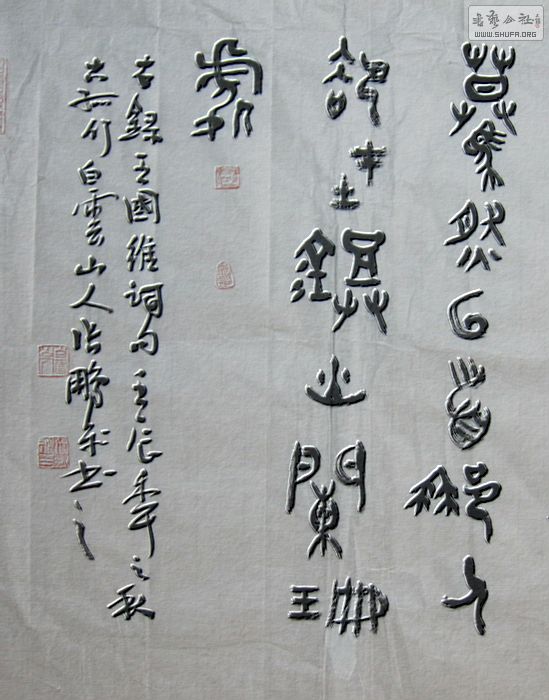 書藝公社
WWW.SHUFA.ORG
驀然回首那人
卻在燈火闌珊
處
右錄王國維詞句壬辰年之秋
白雲山人張鵬書之